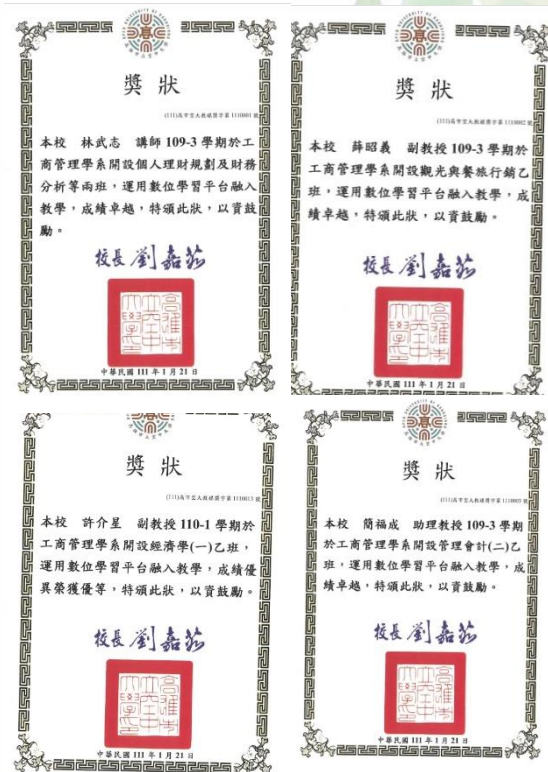 獎狀
(111)高市空大教媒獎字第 1110001 號
本校 林武志 講師 109-3 學期於工
商管理學系開設個人理財規劃及財務
分析等兩班,運用數位學習平台融入
教學,成績卓越,特頒此狀,以資鼓
勵。
校長 劉嘉茹
中華民國 111 年 1 月 21 日
獎狀
(111)高市空大教媒獎字第 1110002 號
本校 薛昭義 副教授 109-3 學期於
工商管理學系開設觀光與餐旅行銷乙
班,運用數位學習平台融入教學,成
績卓越,特頒此狀,以資鼓勵。
校長 劉嘉茹
中華民國 111 年 1 月 21 日
獎狀
(111)高市空大教媒獎字第 1110013 號
本校 許介星 副教授 110-1 學期於
工商管理學系開設經濟學(一)乙班,
運用數位學習平台融入教學,成績優
異榮獲優等,特頒此狀,以資鼓勵。
校長 劉嘉茹
中華民國 111 年 1 月 21 日
獎狀
(111)高市空大教媒獎字第 1110005 號
本校 簡福成 助理教授 109-3 學期
於工商管理學系開設管理會計(二)乙
班,運用數位學習平台融入教學,成
績卓越,特頒此狀,以資鼓勵。
校長 劉嘉茹
中華民國 111 年 1 月 21 日